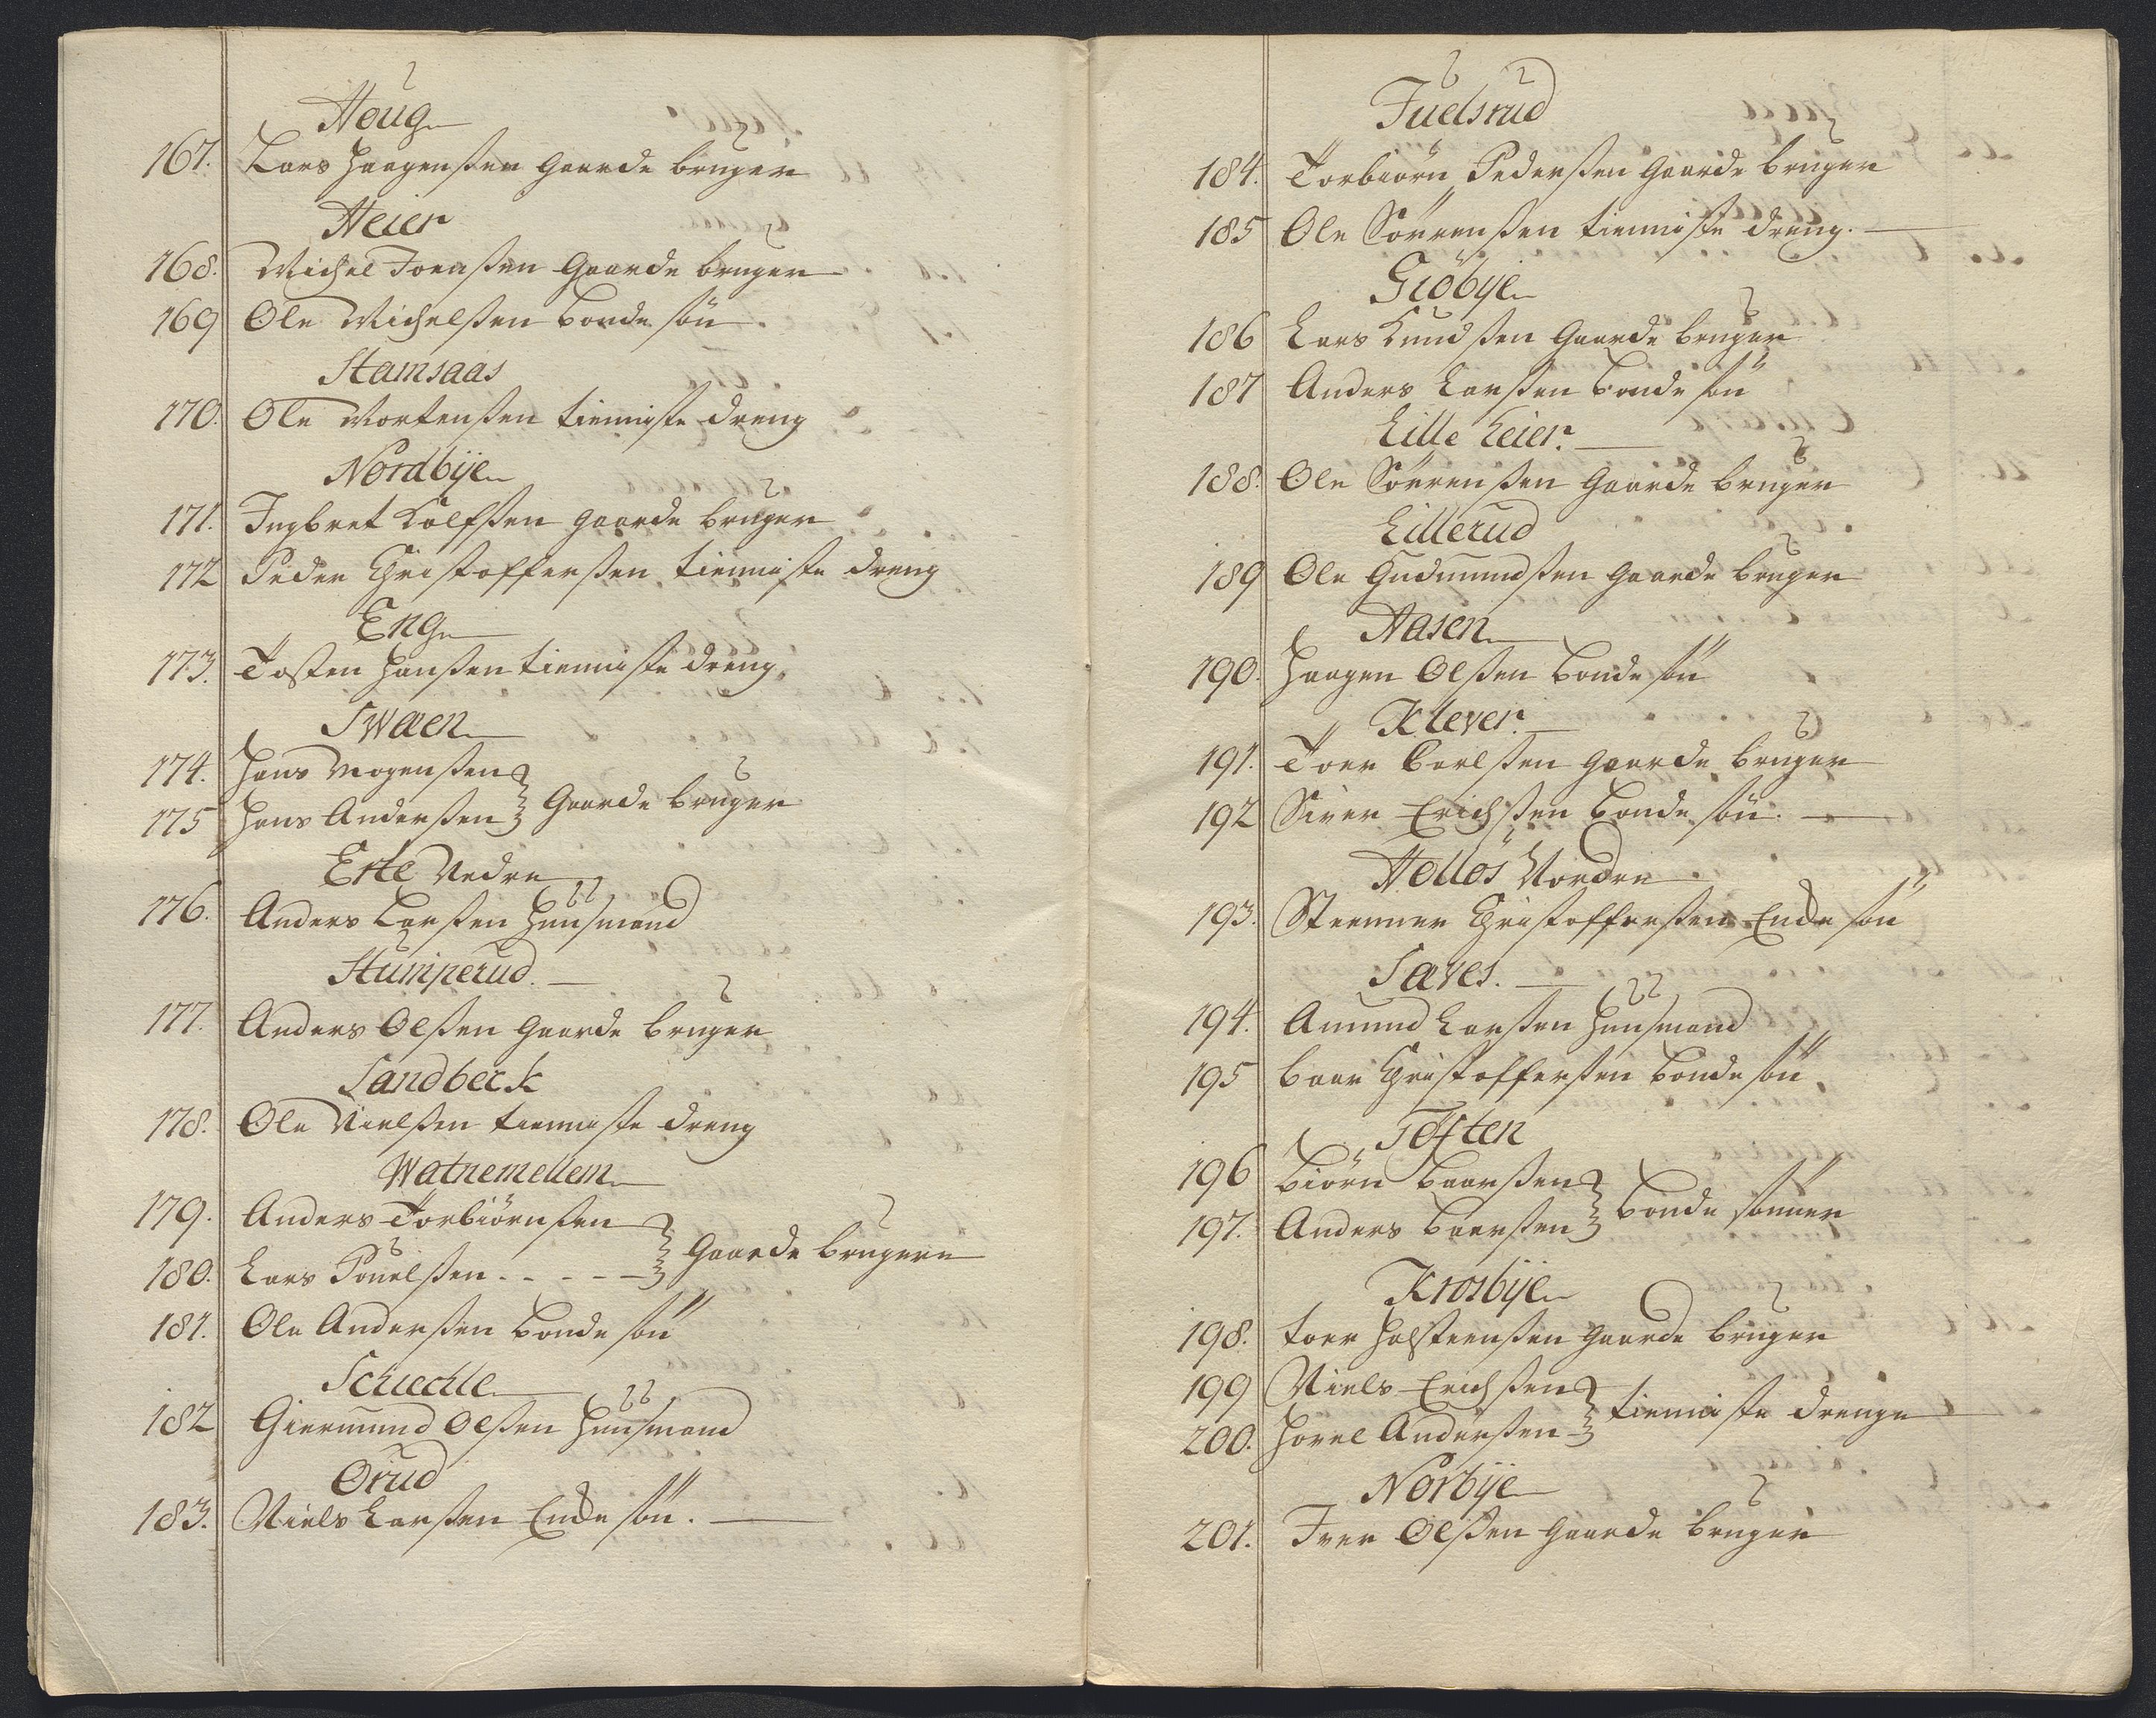 Houg
167. Lars Haagensen Gaarde bruger
Heier
168. Michel Joensen Gaarde bruger
169 Ole Michelsen bonde søn.
Stamsaas
170. Ole Mortensen tienniste dreng
Nordbÿe
171. Ingbret Rolfsen gaarde bruger
172 Peder Christoffersen tienniste dreng
Eng
173. Tosten Hansen tienniste dreng
Swaen
174. Hans Mogensen
175 Hans Andersen } Gaarde bruger
Erte Nedre
176. Anders Larsen Huusmand
Stumperud.
177. Anders Olsen Gaarde bruger
Sandbeck
178. Ole Nielsen tienniste dreng
Watnemellem
179. Anders Torbiörnsen
180. Lars Pouelsen - - - - - } Gaarde brugere
181. Ole Andersen bonde sön
Schiechle
182 Giermund Olsen Huusmand
Orud
183. Niels Larsen Enke sön.
Fuelsrud
184. Torbiörn Pedersen Gaarde bruger
185 Ole Sörrensen tienniste dreng.
Giöbÿe
186 Lars Knudsen Gaarde bruger
187 Anders Larsen bonde sön
Lille Leier.
188. Ole Sörrensen Gaarde bruger
Lillerud
189 Ole Gudmundsen Gaarde bruger
Aasen
190. Haagen Olsen bonde sön
Klever.
191. Toer Carlsen gaarde bruger
192 Siver Erichsen bonde sön.
Hollös Nordre
193. Steenner Christoffersen Enke sön
Saxes.
194. Amund Larsen Huusmand
195 baar Christoffersen bonde sön
Toften
196 Biörn Baarsen
197. Anders Baarsen } bonde sönner
Krosbÿe
198. toer Halsteensen Gaarde bruger
199 Niels Erichsen
200. Hovel Andersen } tienniste drenge
Norbÿe
201. Iver Olsen Gaarde bruger